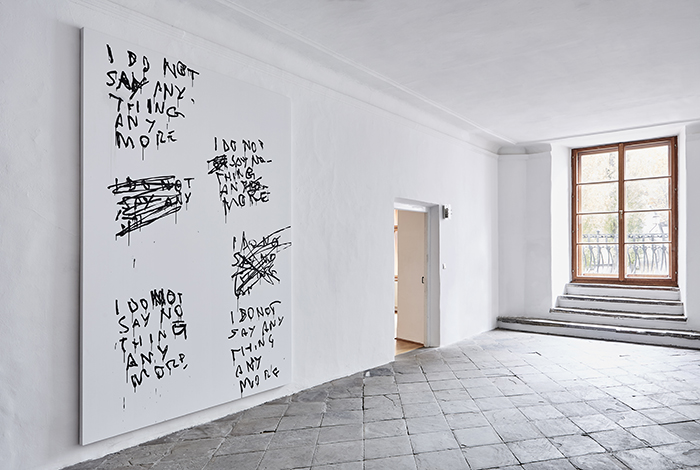 I DO NOT
SAY ANY-
THING
ANY
MORE
I DO NOT
SAY NO-
THING
ANY
MORE
I DO NOT
SAY ANY
I DO NO
SAY NO
I DO NOT
SAY NO
THING
ANY
MORE
I DO NOT
SAY ANY
THING
ANY
MORE